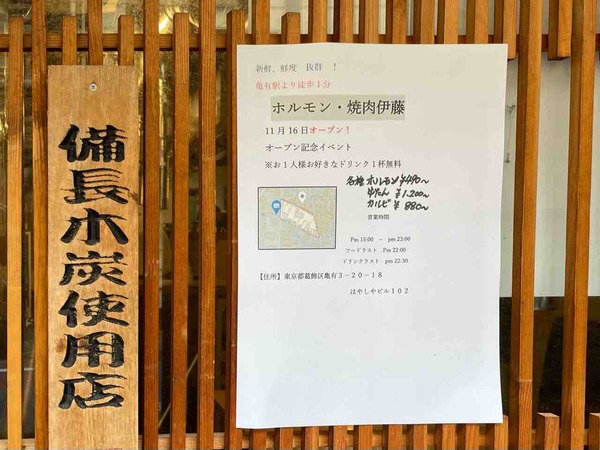 備長木炭使用店
新鮮、鮮度 抜群 !
亀有駅より徒歩1分
ホルモン・焼肉伊藤
11月16日オープン!
オープン記念イベント
※お1人様お好きなドリンク1杯無料
各種 ホルモン ¥490〜
牛たん ¥1.200〜
カルビ ¥ 880〜
営業時間
Pm 15:00 ~ pm 23:00
フードラスト Pm 22:00
ドリンクラスト pm 22:30
【住所】東京都葛飾区亀有3-20-18
はやしやビル102